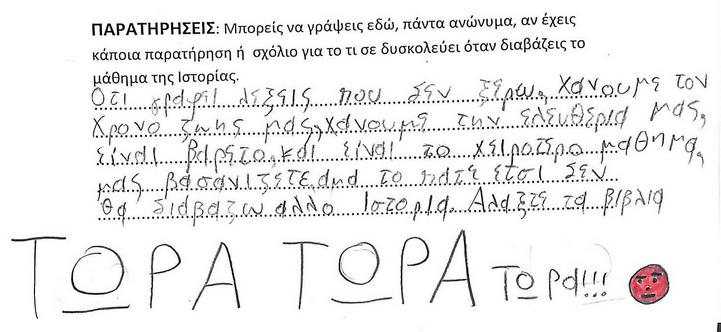 ΠΑΡΑΤΗΡΗΣΕΙΣ: Μπορείς να γράψεις εδώ, πάντα ανώνυμα, αν έχεις
κάποια παρατήρηση ή σχόλιο για το τι σε δυσκολεύει όταν διαβάζεις το
μάθημα της Ιστορίας.
Οτι γραφει λεξεις που δεν ξερω, χανουμε τον
χρονο ζωης μας, χανουμε την ελευθερια μας,
ειναι βαρετο, και ειναι το χειροτερο μαθημα,
μας βασανιζετε, αμα το πατε ετσι δεν
θα διαβαζω αλλο Ιστορια. Αλαξτε τα βιβλια
ΤΩΡΑ ΤΩΡΑ Τωρα!!!